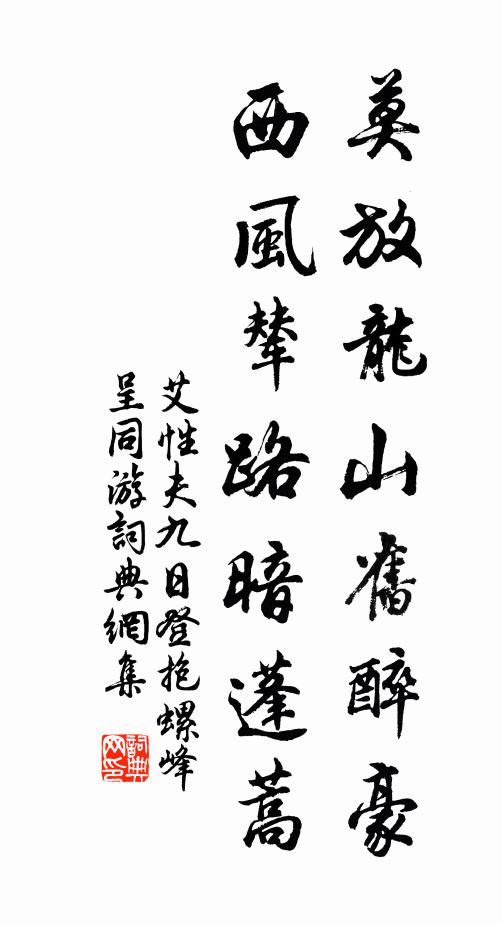 莫放龍山舊醉豪
西風輦路暗蓬蒿
艾性夫九日登抱螺峰
呈同游詞典網集
詞典
网印